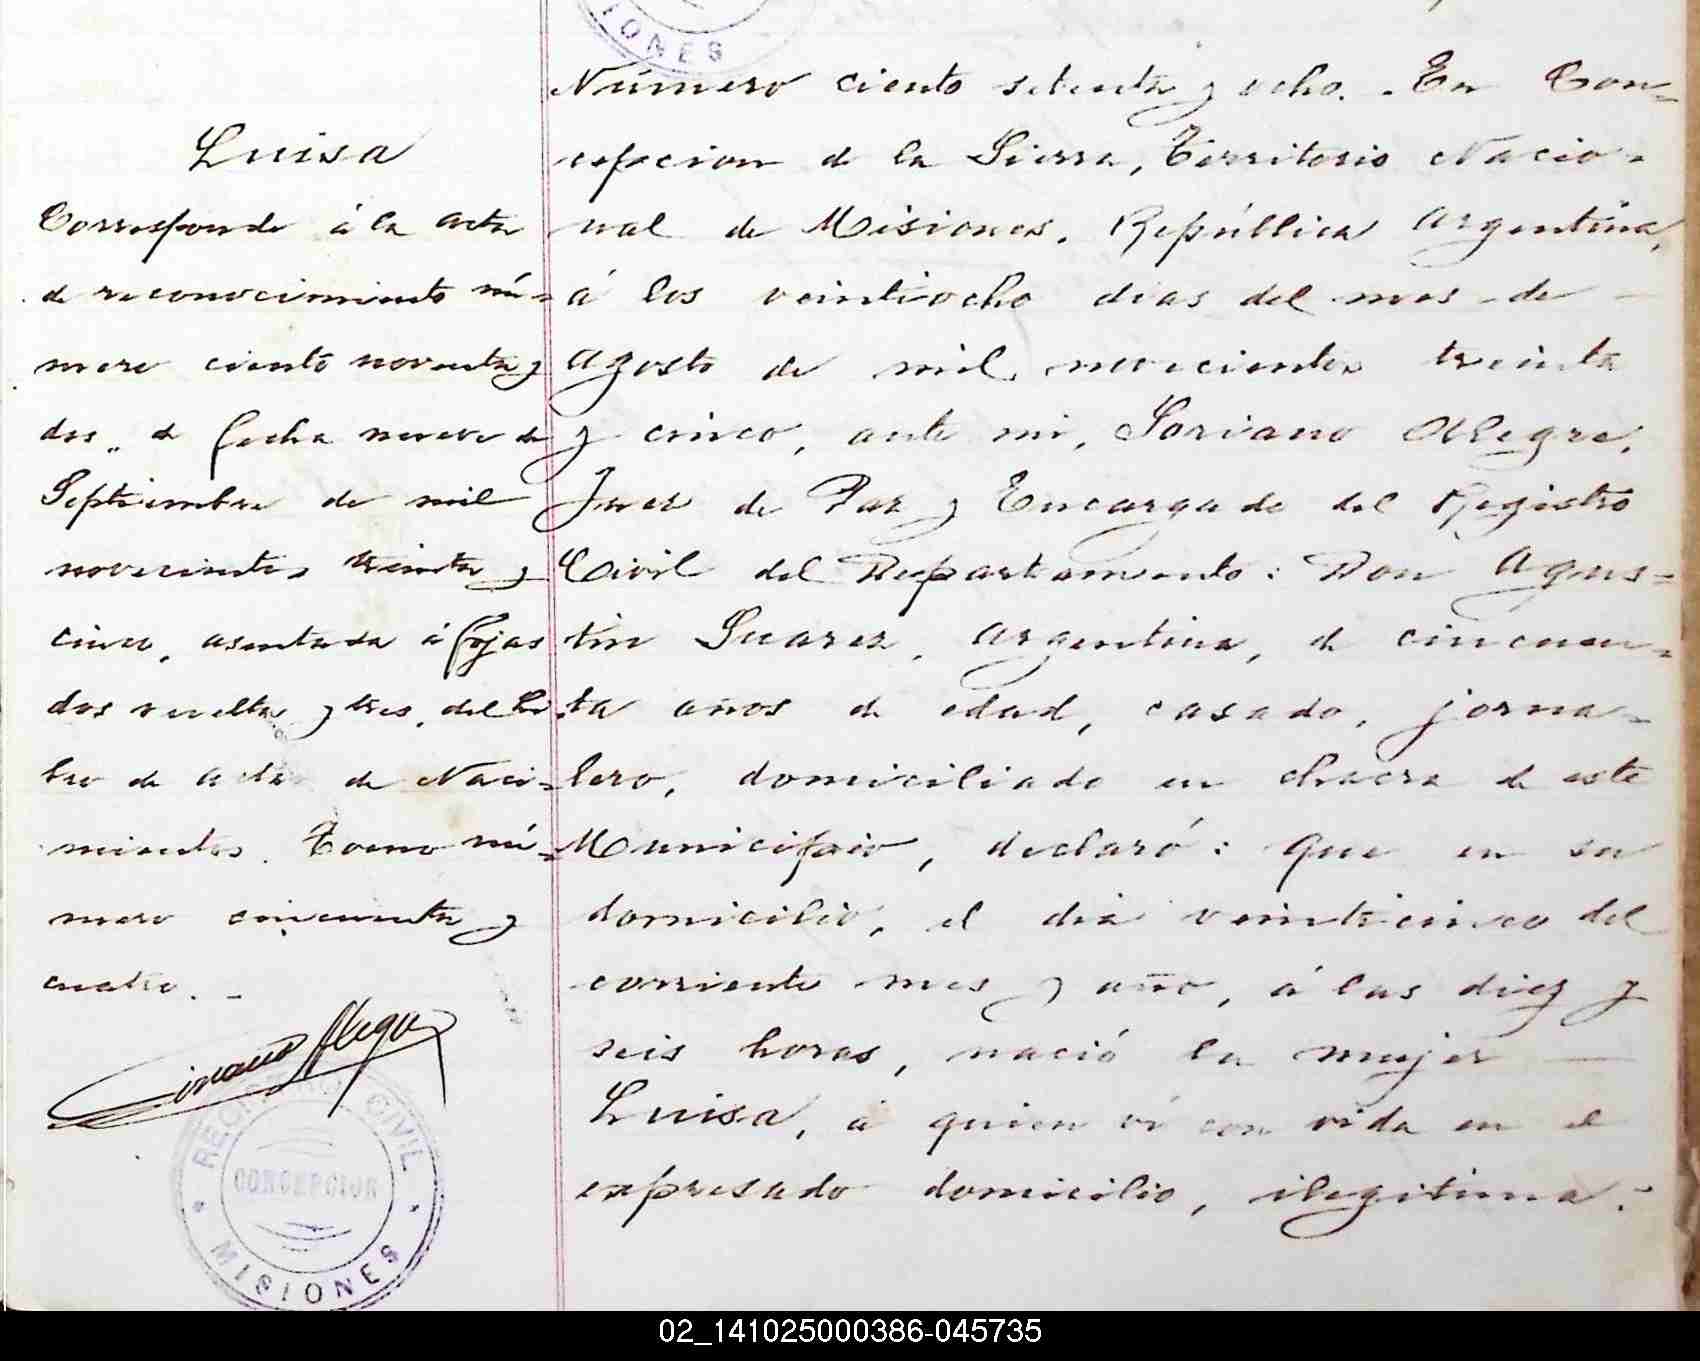 MISIONES
Luisa
Corresponde á la acta
de reconocimiento nú=
mero ciento noventa y
dos, de fecha nueve de
Septiembre de mil
novecientos treinta y
cinco, asentada á fojas
dos vuelta y tres, del Li
bro de actas de Naci=
mientos. Tomo nú=
mero cincuenta y
cuatro. -
Soriano Alegre
REGISTRO CIVIL
CONCEPCION
MISIONES
Número ciento setenta y ocho. - En Con=
cepcion de la Sierra, Territorio Nacio=
nal de Misiones, República Argentina,
á los veintiocho dias del mes de
Agosto de mil novecientos treinta
y cinco, ante mi, Soriano Alegre,
Juez de Paz y Encargado del Registro
Civil del Departamento: Don Agus=
tin Suarez, Argentino, de cincuen=
ta años de edad, casado, jorna=
lero, domiciliado en chacra de este
Municipio, declaró: Que en su
domicilio, el dia veinticinco del
corriente mes y año, á las diez y
seis horas, nació la mujer
Luisa, á quien ví con vida en el
expresado domicilio, ilegitima.-
02_141025000386-045735